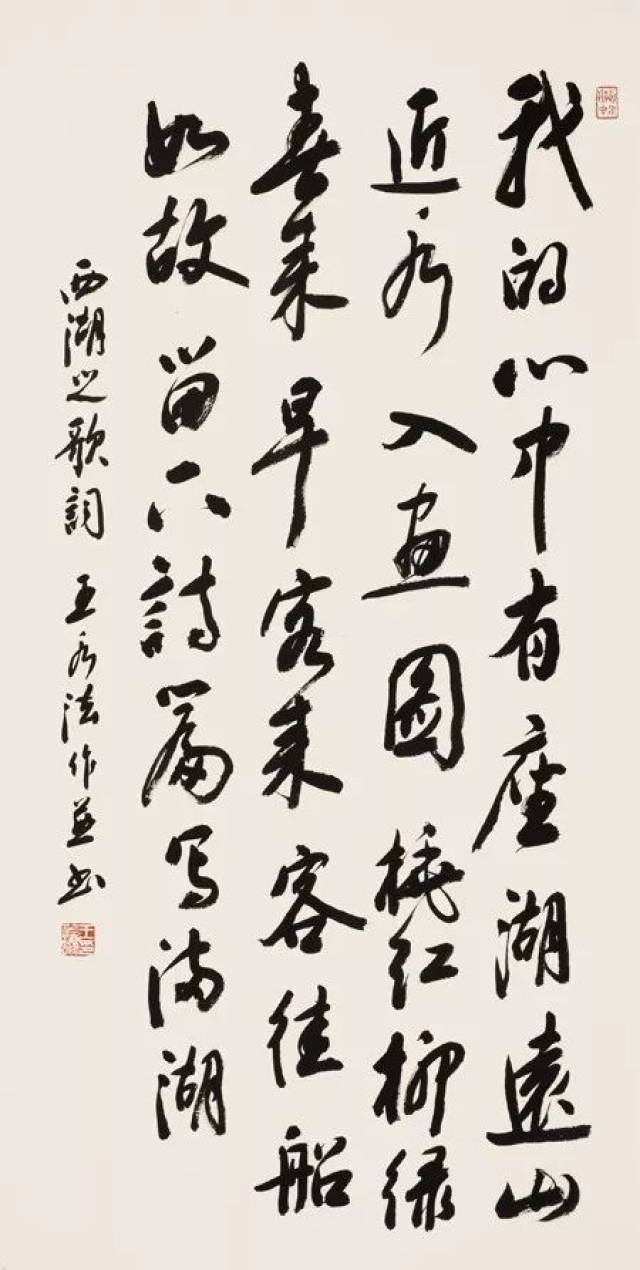 我的心中有座湖遠山
近水入画圖桃红柳绿
春来早客来客往船
如故留下詩篇写满湖
西湖之歌詞 王水法作並书